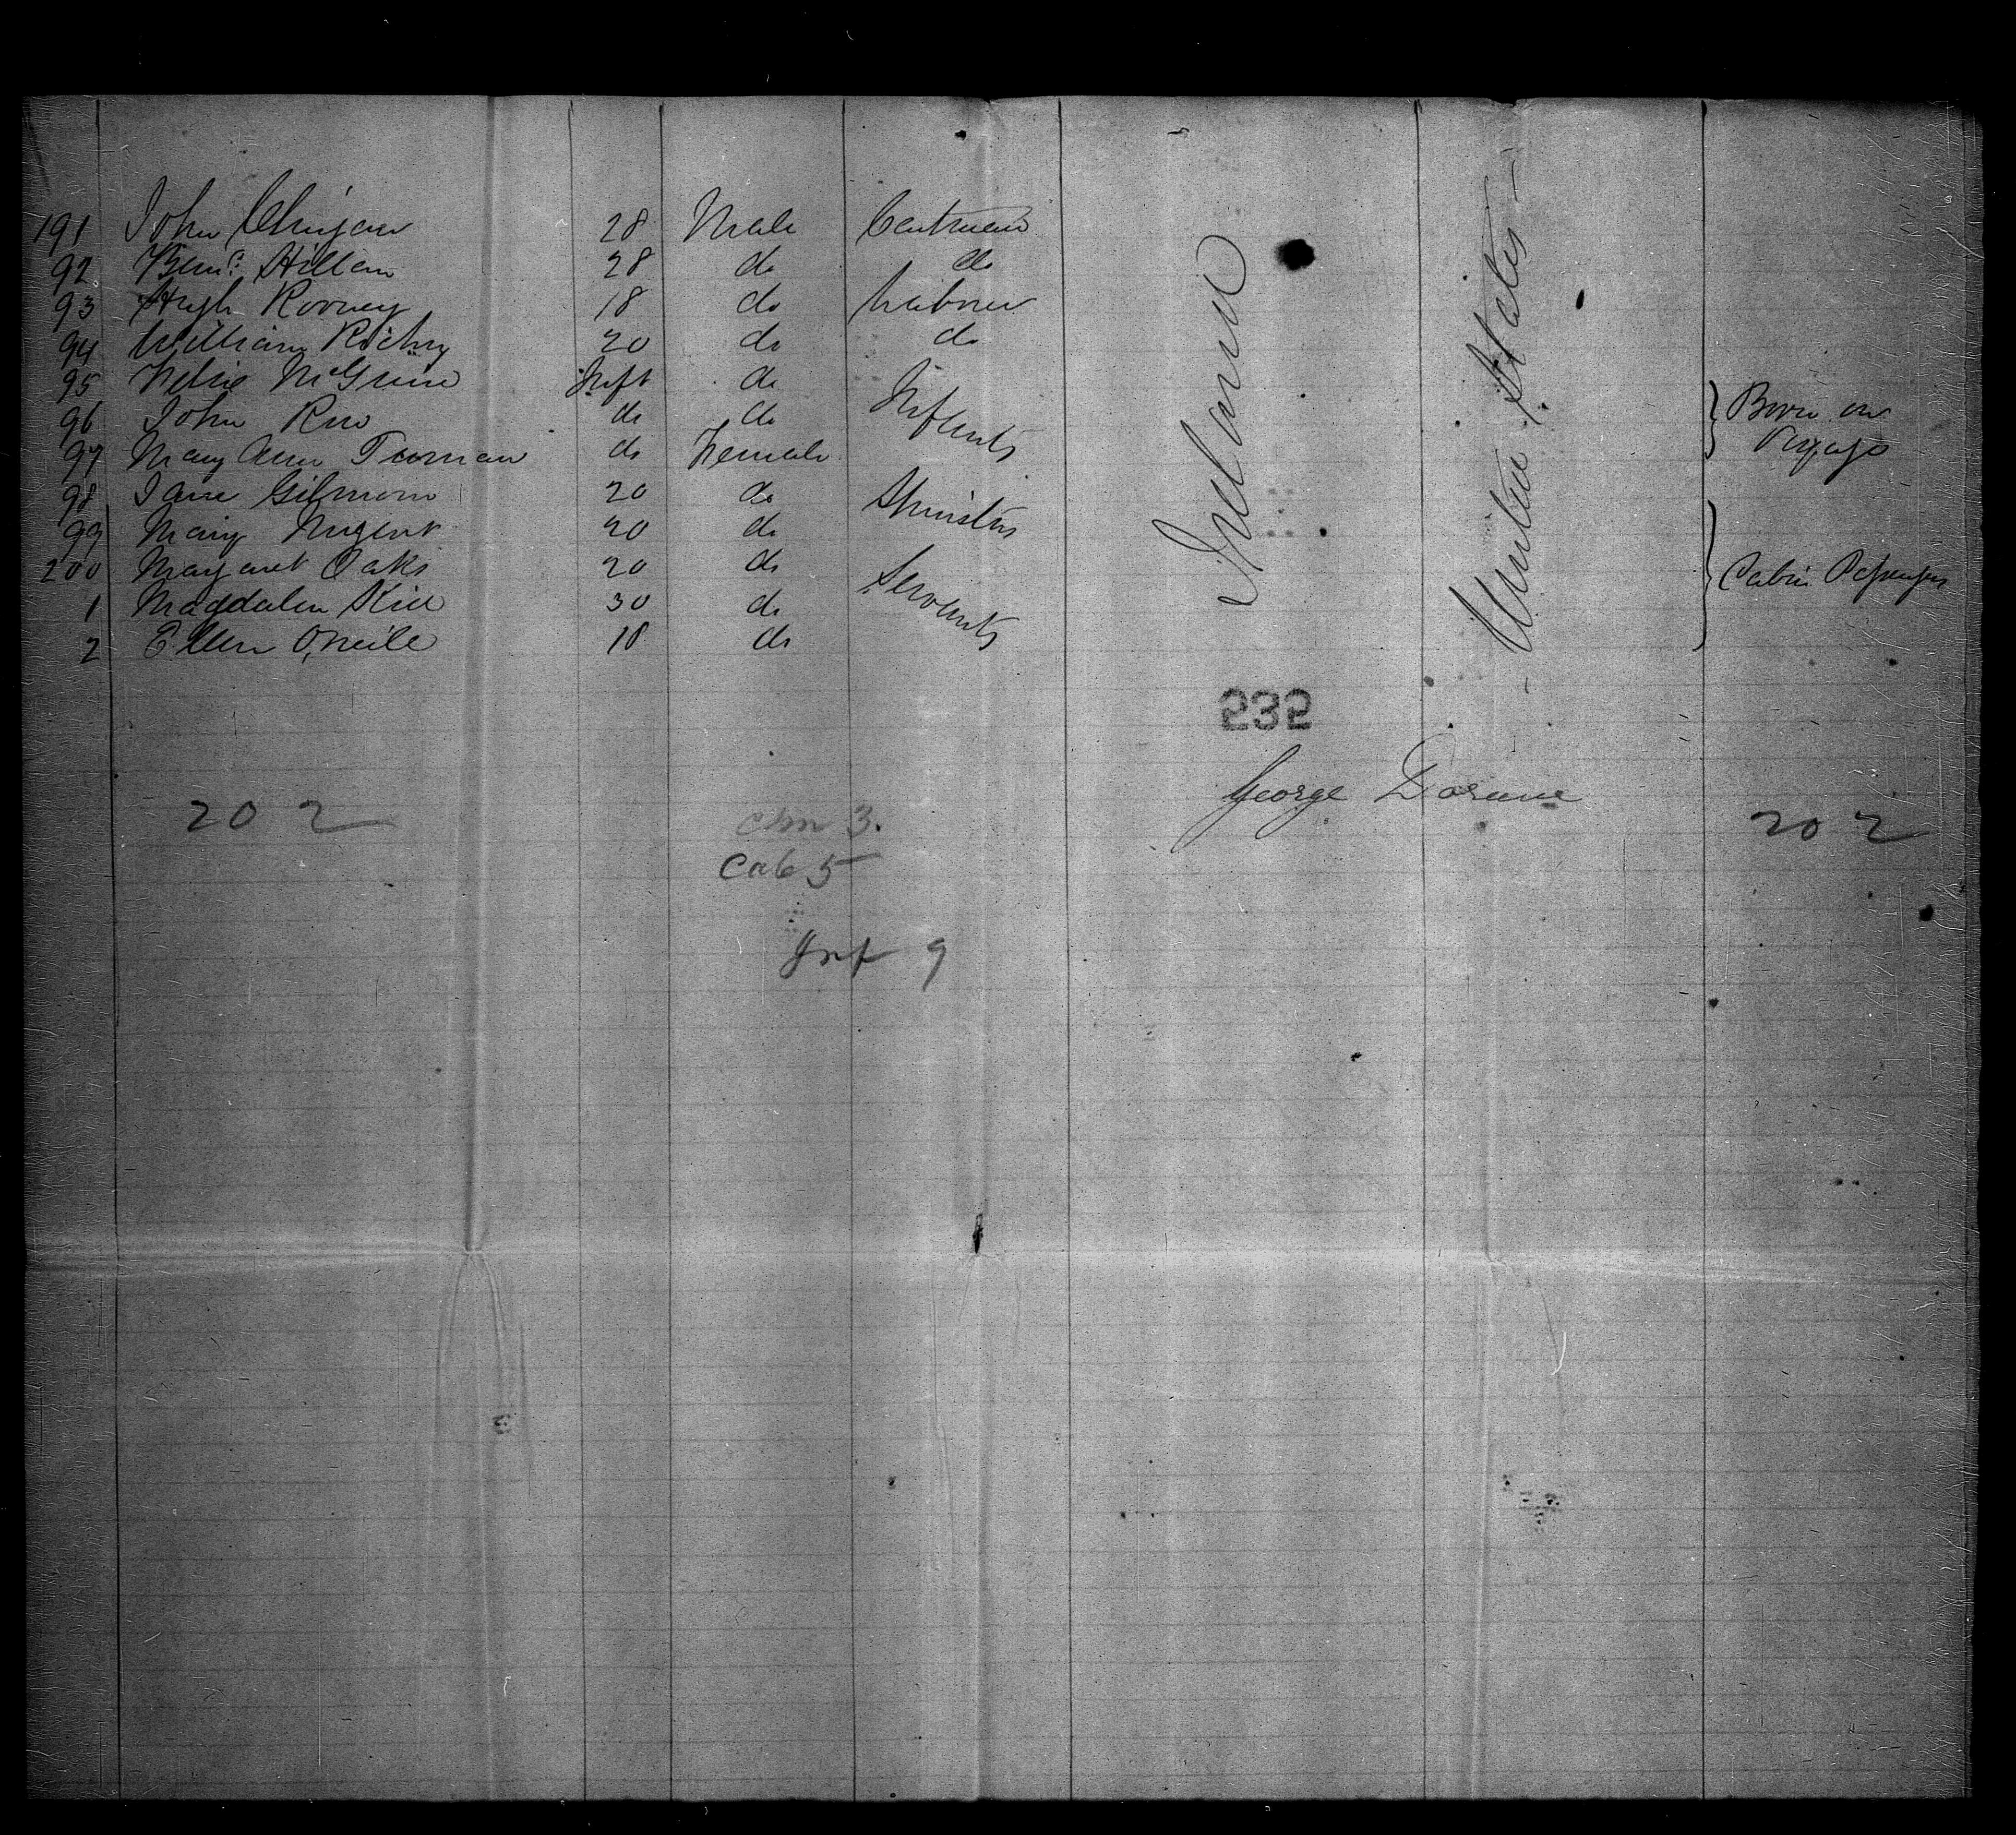 191 John 28 Male
92 28 do do
93 Hugh Rooney 18 do Labourer
94 William 20 do do
95 McGuire Inft do Infants
96 John do do
97 Mary Ann do Female
98 Jane Gilmore 20 do Spinsters
99 Mary Nugent 20 do
200 Margaret Oaks 20 do Servants
1 Magdalen 30 do
2 Ellen O,Neile 18 do
Ireland
- United States -
Born on
Voyage
Cabin
232
George
202
3.
Cab 5
Inf 9
202